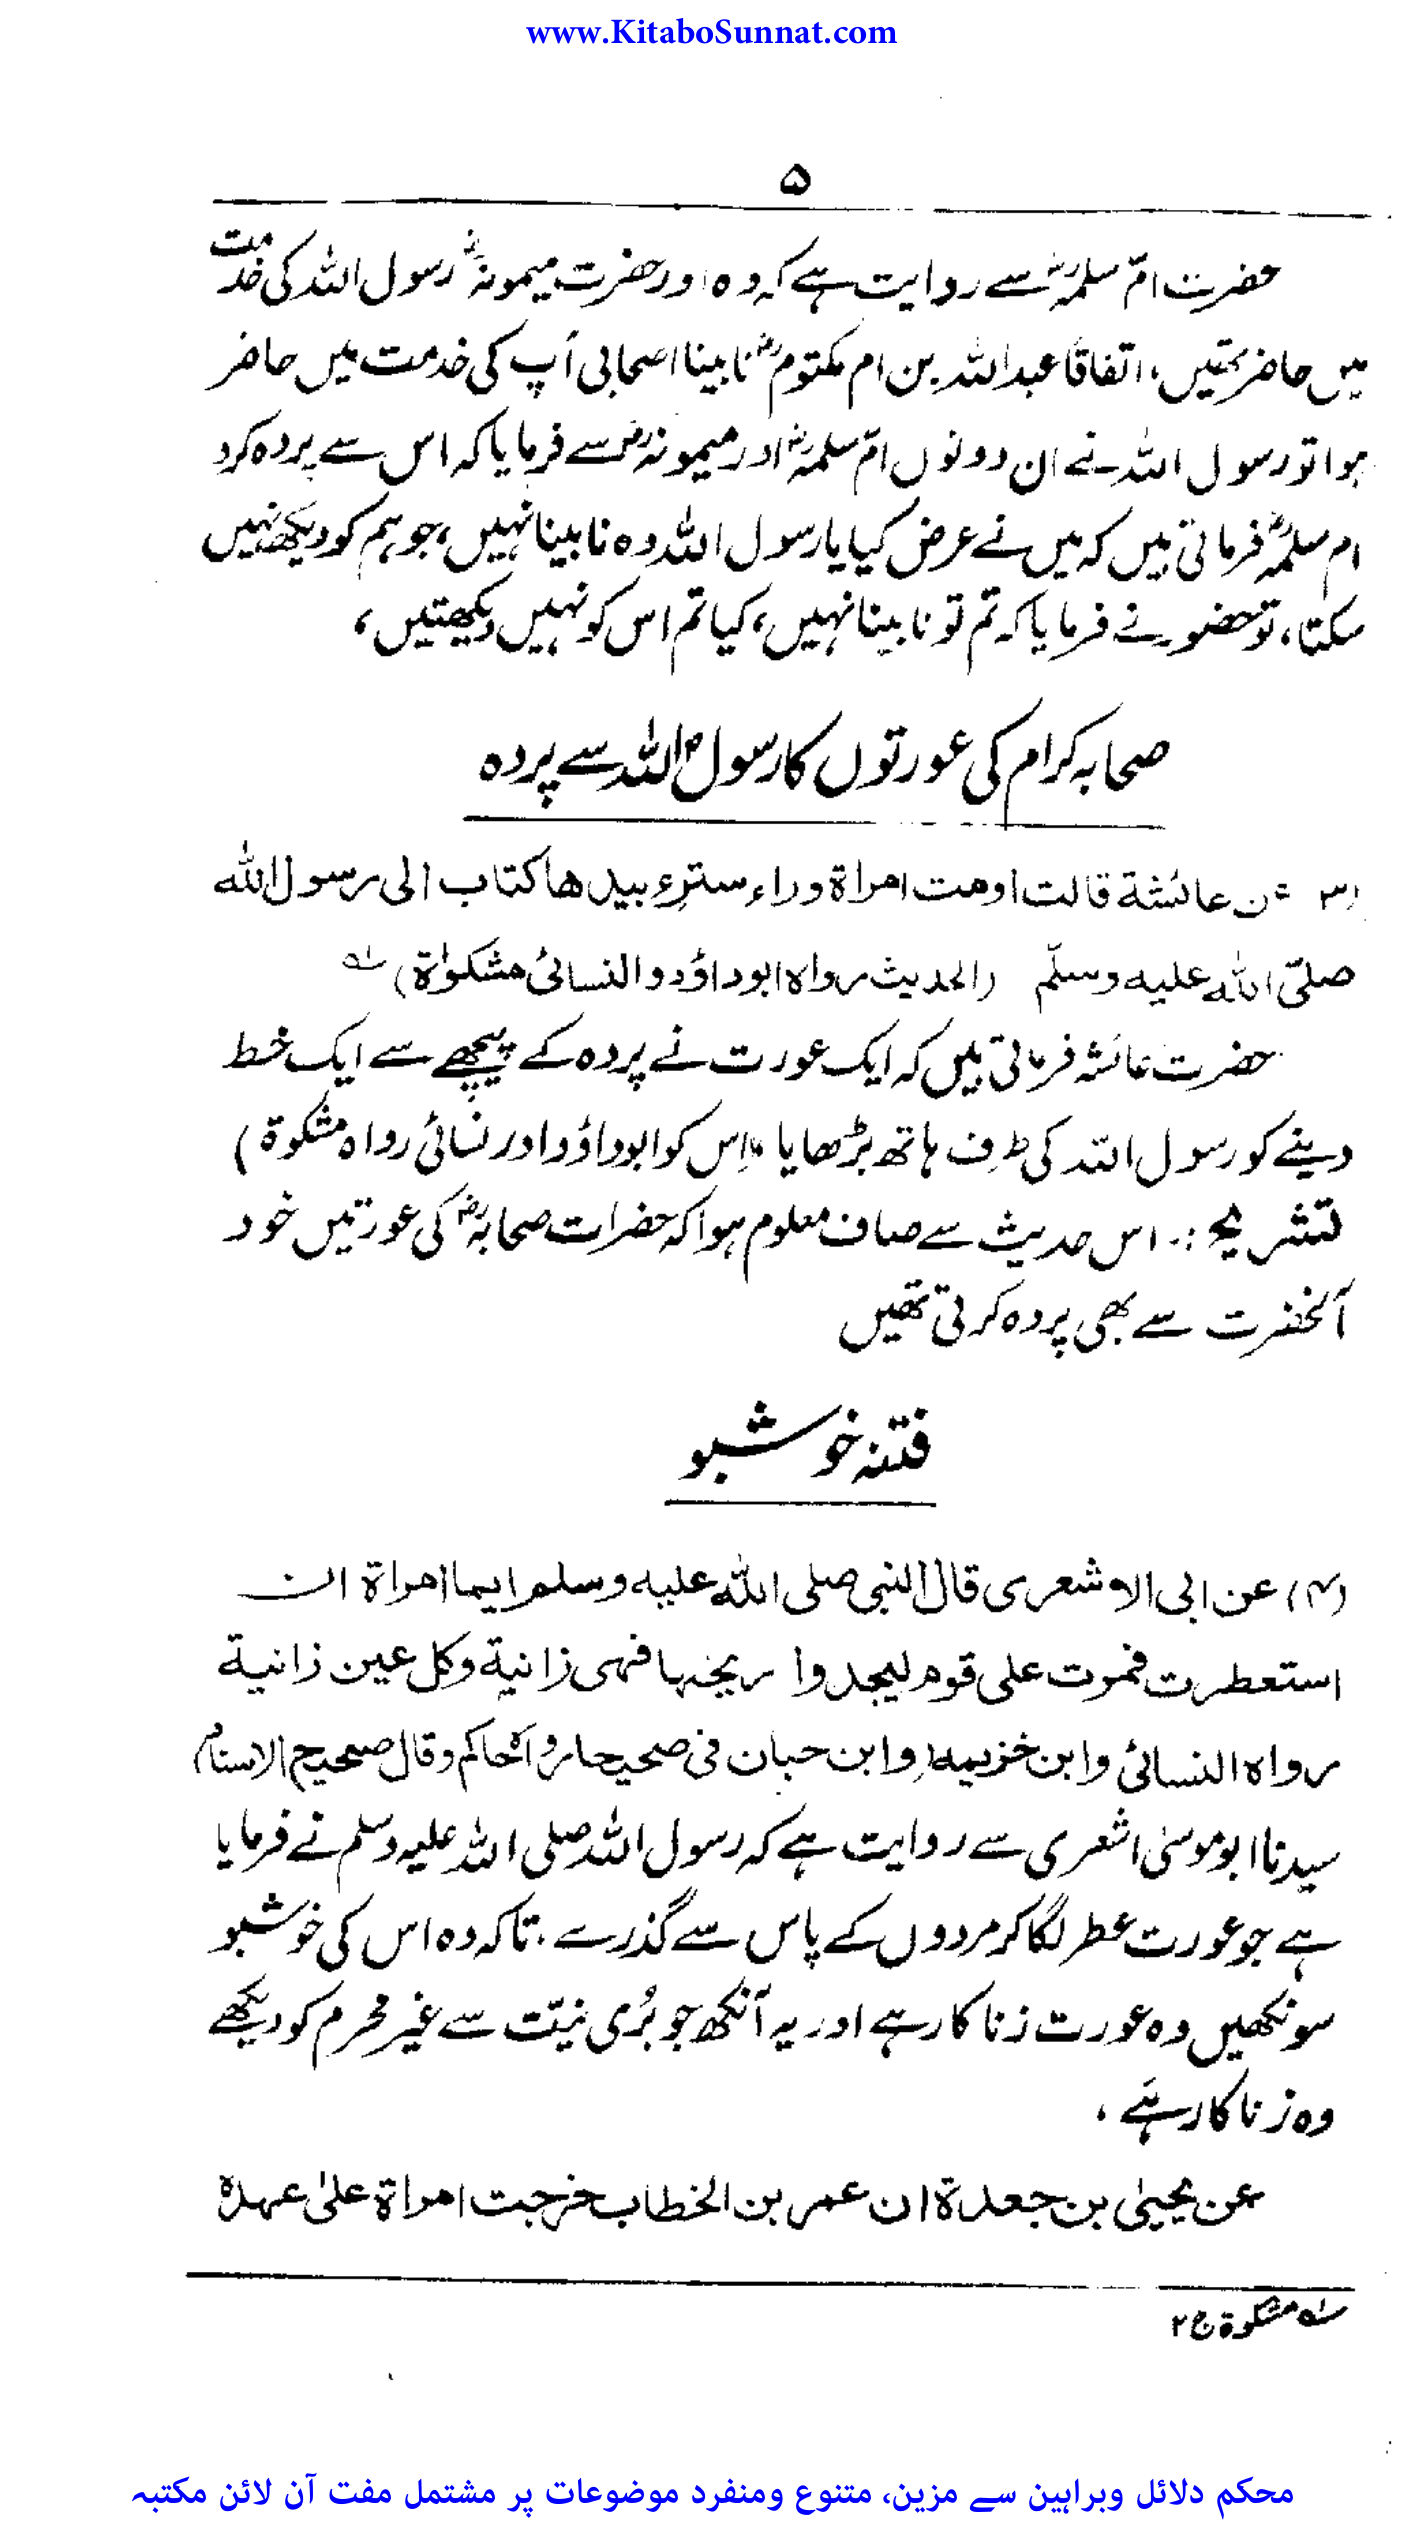 www.KitaboSunnat.com
۵
حضرت امّ سلمہؓ سے روایت ہے کہ وہ اور حضرت میمونہؓ رسول اللہ کی خدمت
میں حاضر تھیں، اتفاقاً عبداللہ بن ام مکتومؓ نابینا اصحابی آپ کی خدمت میں حاضر
ہوا تو رسول اللہ نے ان دونوں امّ سلمہؓ اور میمونہؓ سے فرمایا کہ اس سے پردہ کرو
ام سلمہؓ فرماتی ہیں کہ میں نے عرض کیا یا رسول اللہ وہ نابینا نہیں، جو ہم کو دیکھ نہیں
سکتا، تو حضور نے فرمایا کہ تم تو نابینا نہیں، کیا تم اس کو نہیں دیکھتیں،
صحابہ کرام کی عورتوں کا رسول اللہ سے پردہ
(۳) عن عائشة قالت اومت امراة وراء ستر بیدھا کتاب الی رسول اللہ
صلیّ اللہ علیہ وسلّم (الحدیث رواہ ابوداؤد والنسائی مشکوٰة) ؎
حضرت عائشہ فرماتی ہیں کہ ایک عورت نے پردہ کے پیچھے سے ایک خط
دینے کو رسول اللہ کی طرف ہاتھ بڑھایا (اس کو ابوداؤد اور نسائی رواہ مشکوة)
تشریح :۔ اس حدیث سے صاف معلوم ہوا کہ حضرات صحابہؓ کی عورتیں خود
آنحضرت سے بھی پردہ کرتی تھیں
فتنہ خوشبو
(۴) عن ابی الاشعری قال النبی صلی اللہ علیہ وسلم ایما امراة ان
استعطرت فمرت علی قوم لیجدوا ریحہا فہی زانیة وکل عین زانیة
رواہ النسائی وابن خزیمہ وابن حبان فی صحیحا رواہ الحاکم وقال صحیح الاسناد)
سیدنا ابو موسیٰ اشعری سے روایت ہے کہ رسول اللہ صلی اللہ علیہ وسلم نے فرمایا
ہے جو عورت عطر لگا کر مردوں کے پاس سے گذرے، تاکہ وہ اس کی خوشبو
سونگھیں وہ عورت زنا کار ہے اور یہ آنکھ جو بُری نیّت سے غیر محرم کو دیکھے
وہ زنا کار ہے،
عن یحییٰ بن جعدة ان عمر بن الخطاب خرجت امراة علیٰ عہدہ
؎ مشکوة ج ۲
محکم دلائل وبراہین سے مزین، متنوع ومنفرد موضوعات پر مشتمل مفت آن لائن مکتبہ